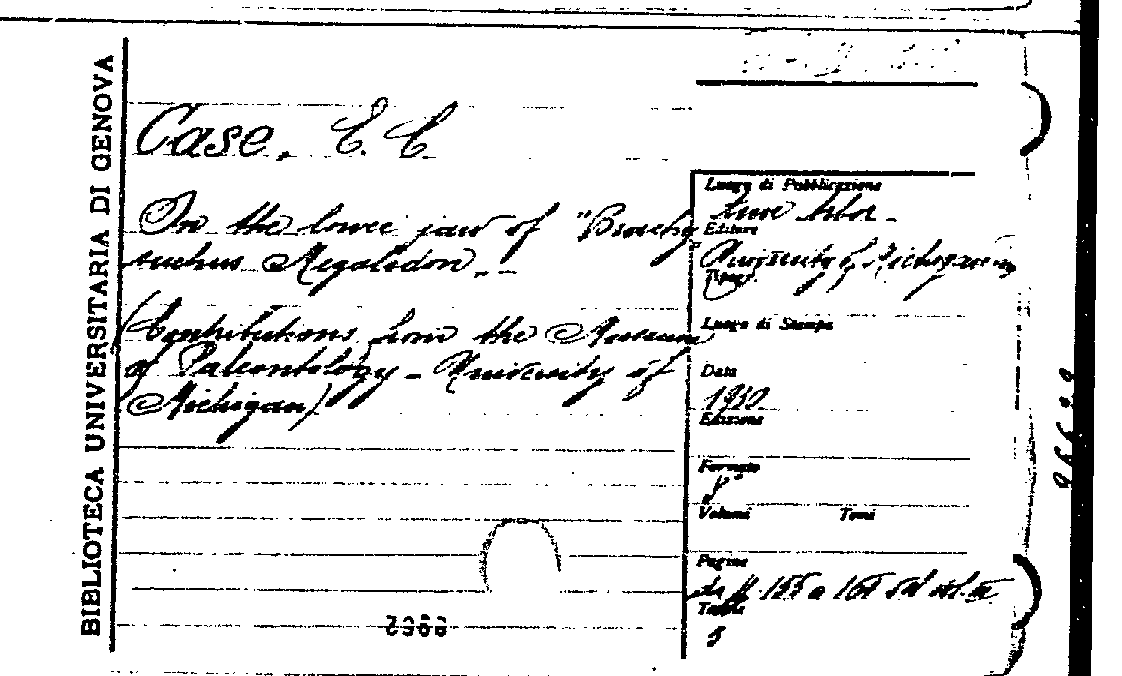 BIBLIOTECA UNIVERSITARIA DI GENOVA
Case, E. C.
On the lower jaw of "Brachy
suchus Megalodon. -
(Contributions from the Museum
of Paleontology - University of
Michigan)
Luogo di Pubblicazione
Ann Arbor -
Editore
University of Michigan
Luogo di Stampa
Data
1930
Edizione
Formato
8°
Volumi Tomi
Pagine
da p. 155 a 161
Tavole
5